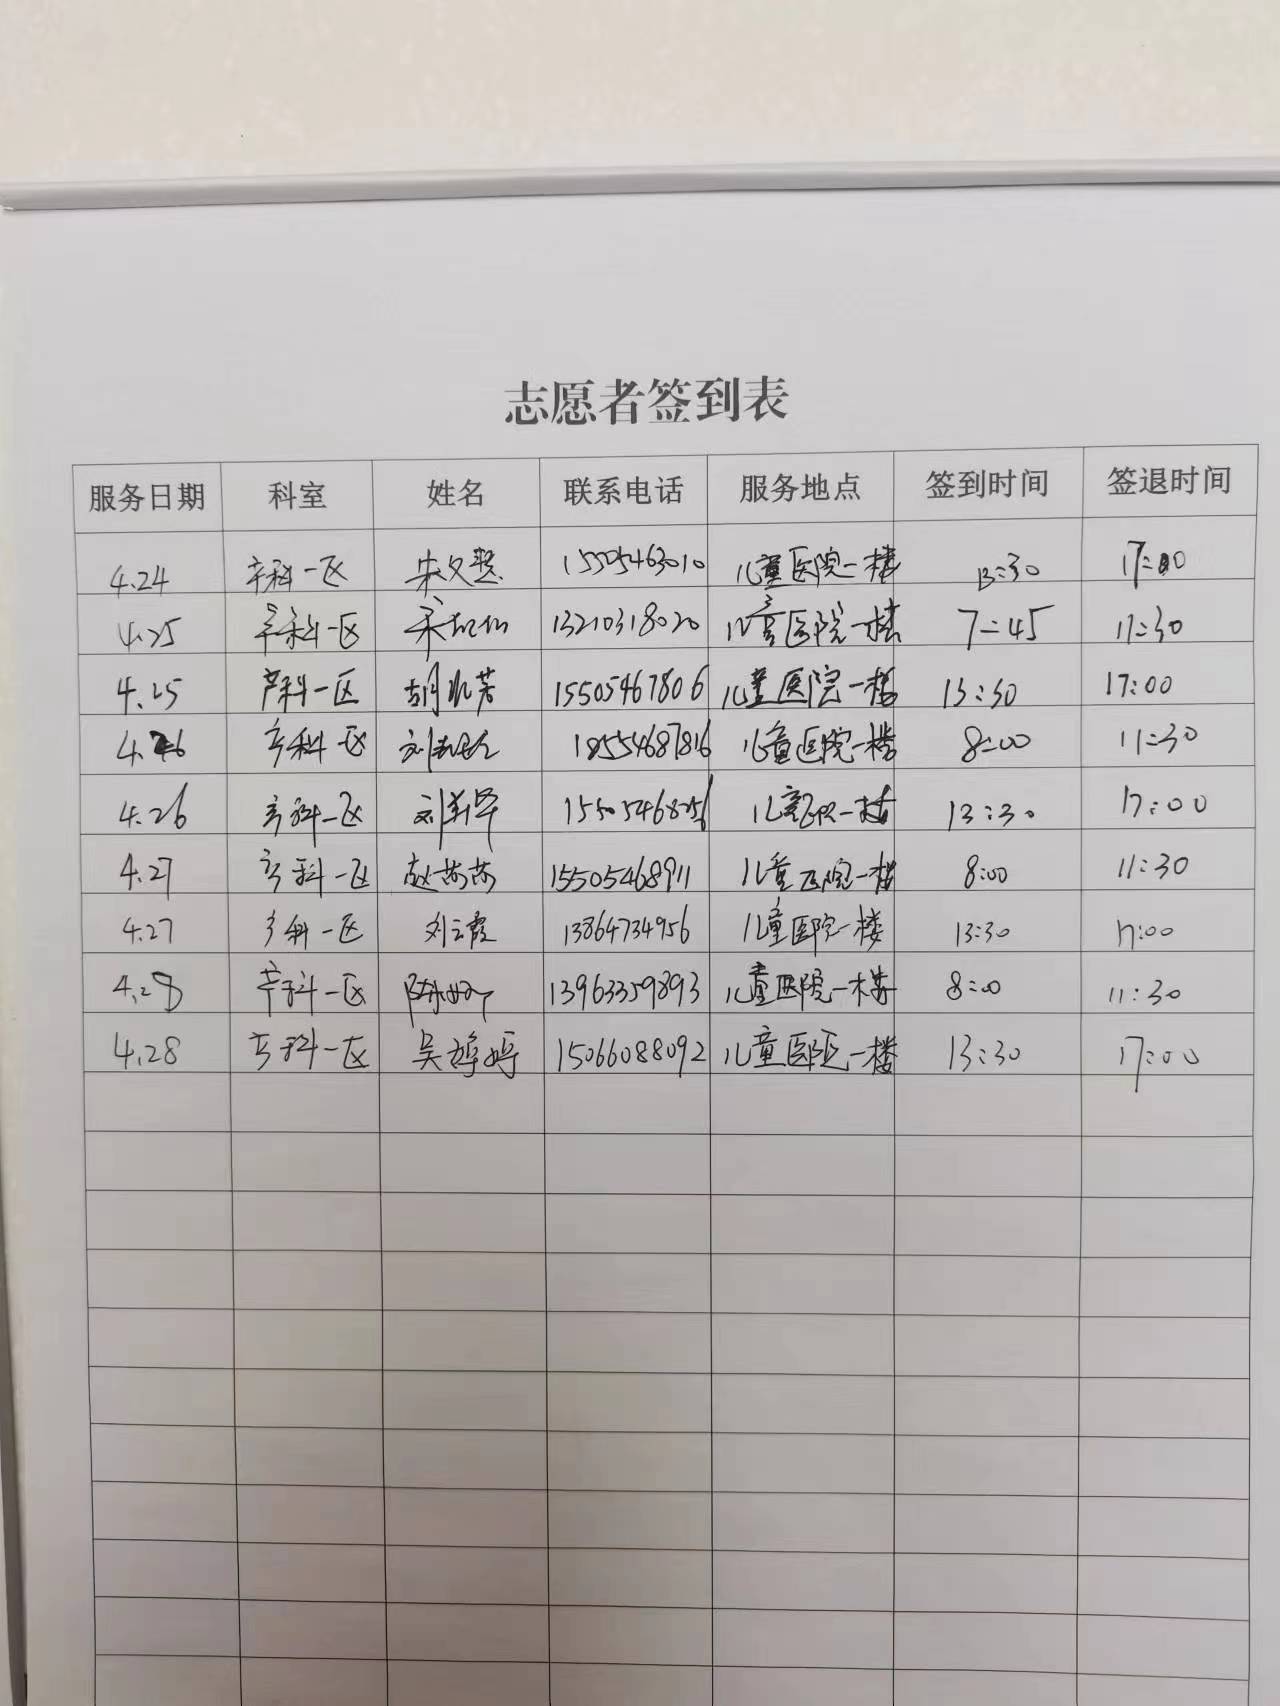 志愿者签到表
服务日期 科室 姓名 联系电话 服务地点 签到时间 签退时间
4.24 产科一区 宋文慧 15505463010 儿童医院一楼 13:30 17:00
4.25 产科一区 13210318020 儿童医院一楼 7:45 11:30
4.25 产科一区 胡 芳 15505467806 儿童医院一楼 13:30 17:00
4.26 产科一区 刘 18554687816 儿童医院一楼 8:00 11:30
4.26 产科一区 刘 儿童医院一楼 13:30 17:00
4.27 产科一区 赵莎莎 15505468911 儿童医院一楼 8:00 11:30
4.27 产科一区 刘云霞 13864734956 儿童医院一楼 13:30 17:00
4.28 产科一区 陈婷 13963359893 儿童医院一楼 8:00 11:30
4.28 产科一区 吴婷婷 15066088092 儿童医院一楼 13:30 17:00